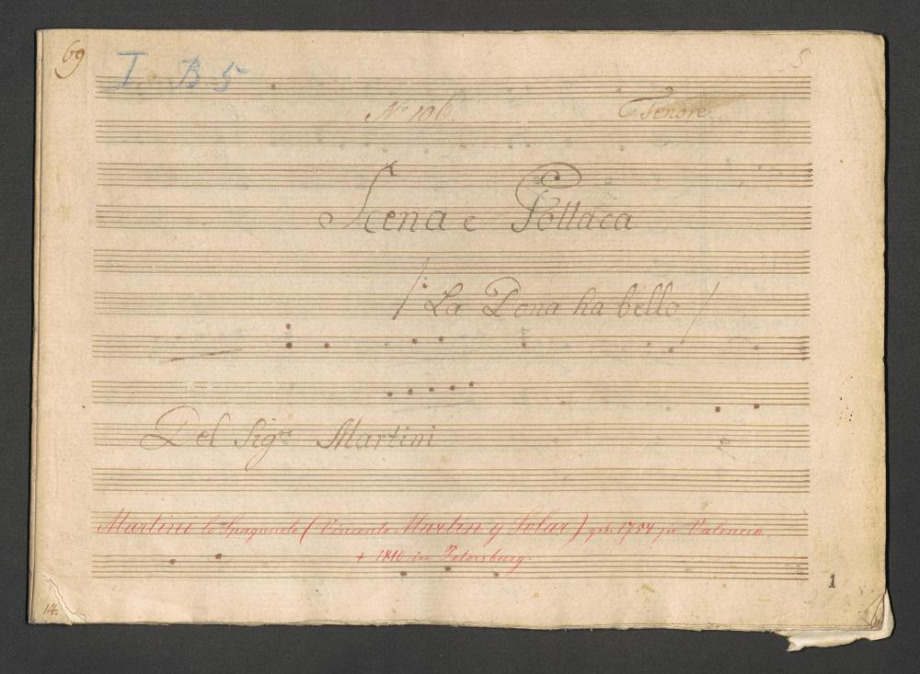 69
I. B 5
5
No 106.
Tenore.
Scena e Pollaca
/: La Dona ha bello /
Del Sigre Martini
Martini lo Spagnuolo (Vincente Martin y Solar) geb. 1754 in Valencia.
+ 1810 in Petersburg.
14.
1